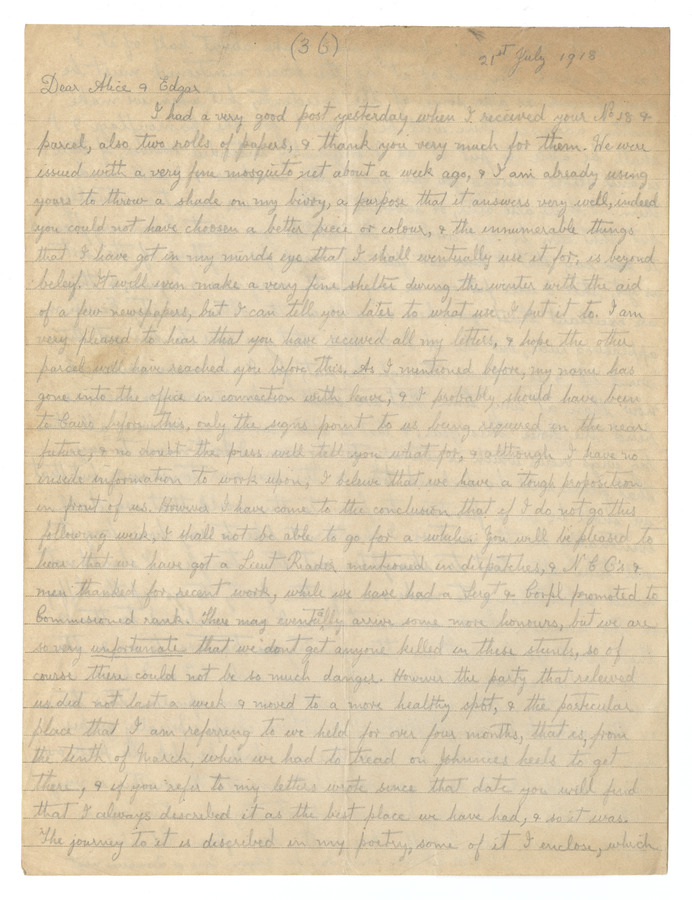 (36)
21st July 1918
Dear Alice & Edgar
I had a very good post yesterday when I received your No 18 &
parcel, also two rolls of papers, & thank you very much for them. We were
issued with a very fine mosquito net about a week ago, & I am already using
yours to throw a shade on my bivvy, a purpose that it answers very well, indeed
you could not have choosen a better piece or colour, & the innumerable things
that I have got in my minds eye that I shall eventually use it for, is beyond
beleif. It will even make a very fine shelter during the winter with the aid
of a few newspapers, but I can tell you later to what use I put it to. I am
very pleased to hear that you have received all my letters, & hope the other
parcel will have reached you before this. As I mentioned before, my name has
gone into the office in connection with leave, & I probably should have been
to Cairo before this, only the signs point to us being required in the near
future, & no doubt the press will tell you what for, & although I have no
inside information to work upon, I believe that we have a tough proposition
in front of us. However I have come to the conclusion that if I do not go this
following week, I shall not be able to go for a while. You will be pleased to
hear that we have got a Lieut Reader mentioned in dispatches, & N C O's &
men thanked for recent work, while we have had a Sergt & Corpl promoted to
Commisioned rank. There may eventually arrive some more honours, but we are
so very unfortunate that we dont get anyone killed in these stunts, so of
course there could not be so much danger. However the party that releived
us did not last a week & moved to a more healthy spot, & the particular
place that I am referring to we held for over four months, that is, from
the tenth of March, when we had to tread on Johnnies heels to get
there, & if you refer to my letters wrote since that date you will find
that I always described it as the best place we have had, & so it was.
The journey to it is discribed in my poetry, some of it I enclose, which